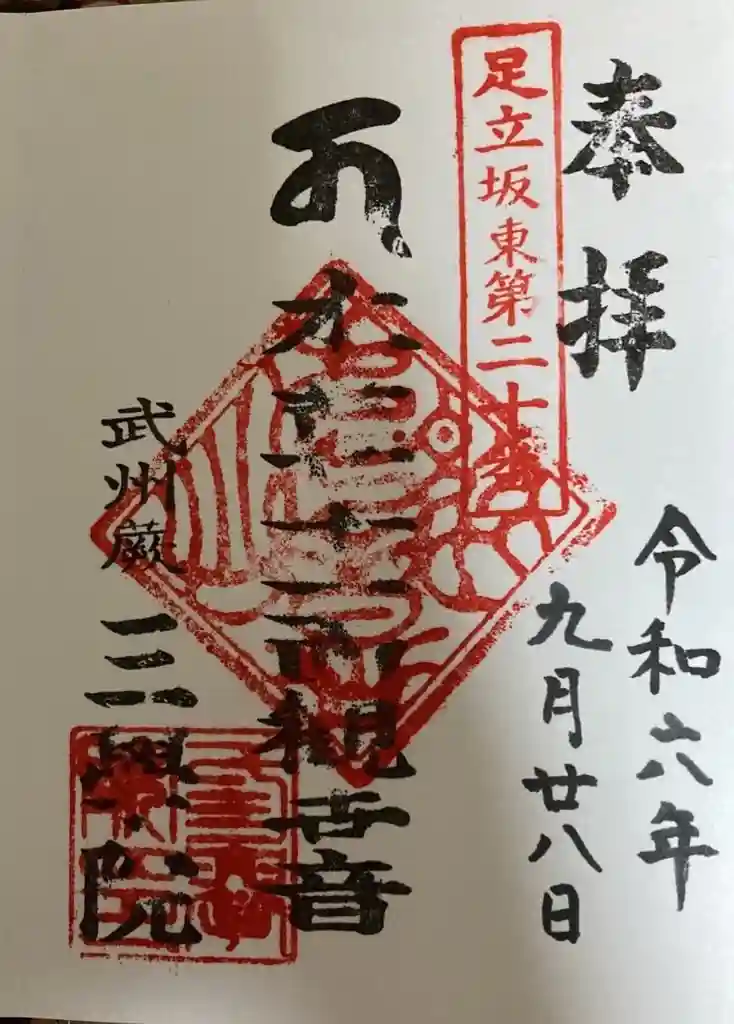 奉拝
足立坂東第二十番
令和六年
九月廿八日
十一面観世音
武州蕨
三學院